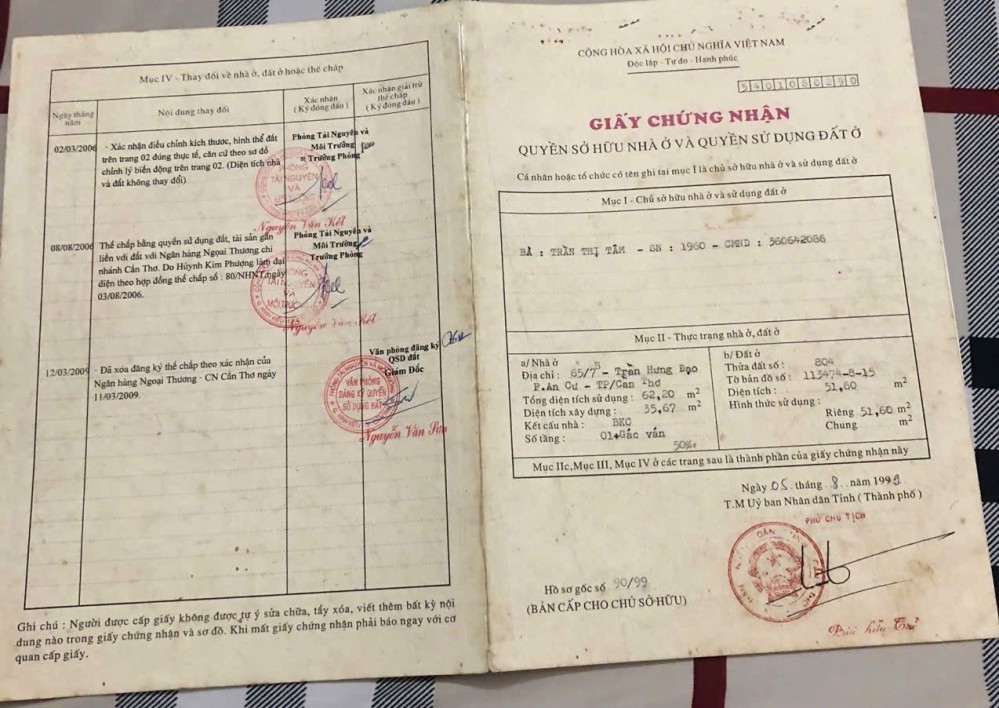 Mục IV - Thay đổi về nhà ở, đất ở hoặc thế chấp
Ngày tháng năm
Nội dung thay đổi
Xác nhận
( Ký đóng dấu )
Xác nhận giải trừ
thế chấp
( Ký đóng dấu )
02/03/2006
- Xác nhận điều chỉnh kích thước, hình thể đất
trên trang 02 đúng thực tế, căn cứ theo sơ đồ
chỉnh lý biến động trên trang 02. (Diện tích nhà
và đất không thay đổi)
Phòng Tài Nguyên và
Môi Trường
Trưởng Phòng
PHÒNG
TÀI NGUYÊN
VÀ
Nguyễn Văn Kết
08/08/2006
Thế chấp bằng quyền sử dụng đất, tài sản gắn
liền với đất với Ngân hàng Ngoại Thương chi
nhánh Cần Thơ. Do Huỳnh Kim Phượng làm đại
diện theo hợp đồng thế chấp số : 80/NHNT,ngày
03/08/2006.
Phòng Tài Nguyên và
Môi Trường
Trưởng Phòng
TÀI NGUYÊN
VÀ
Nguyễn Văn Kết
12/03/2009
- Đã xóa đăng ký thế chấp theo xác nhận của
Ngân hàng Ngoại Thương - CN Cần Thơ ngày
11/03/2009.
Văn phòng đăng ký
QSD đất
Giám Đốc
VĂN PHÒNG
ĐĂNG KÝ QUYỀN
SỬ DỤNG ĐẤT
Nguyễn Văn
Ghi chú : Người được cấp giấy không được tự ý sửa chữa, tẩy xóa, viết thêm bất kỳ nội
dung nào trong giấy chứng nhận và sơ đồ. Khi mất giấy chứng nhận phải báo ngay với cơ
quan cấp giấy.
CỘNG HÒA XÃ HỘI CHỦ NGHĨA VIỆT NAM
Độc lập - Tự do - Hạnh phúc
5401080290
GIẤY CHỨNG NHẬN
QUYỀN SỞ HỮU NHÀ Ở VÀ QUYỀN SỬ DỤNG ĐẤT Ở
Cá nhân hoặc tổ chức có tên ghi tại mục I là chủ sở hữu nhà ở và sử dụng đất ở
Mục I - Chủ sở hữu nhà ở và sử dụng đất ở
BÀ : TRẦN THỊ TÂM - SN : 1960 - CMND : 360642086
Mục II - Thực trạng nhà ở, đất ở
a/ Nhà ở
Địa chỉ : 65/7B - Trần Hưng Đạo
P.An Cư - TP/Cần Thơ
Tổng diện tích sử dụng : 62,20 m²
Diện tích xây dựng : 35,67 m²
Kết cấu nhà : BKC
Số tầng : 01+Gác ván
50%
b/ Đất ở
Thửa đất số : 804
Tờ bản đồ số : 113474-8-15
Diện tích : 51,60 m²
Hình thức sử dụng :
Riêng 51,60 m²
Chung m²
Mục IIc, Mục III, Mục IV ở các trang sau là thành phần của giấy chứng nhận này
Ngày 05 tháng 8 năm 1999
T.M Uỷ ban Nhân dân Tỉnh ( Thành phố )
PHÓ CHỦ TỊCH
Hồ sơ gốc số 90/99
(BẢN CẤP CHO CHỦ SỞ HỮU)